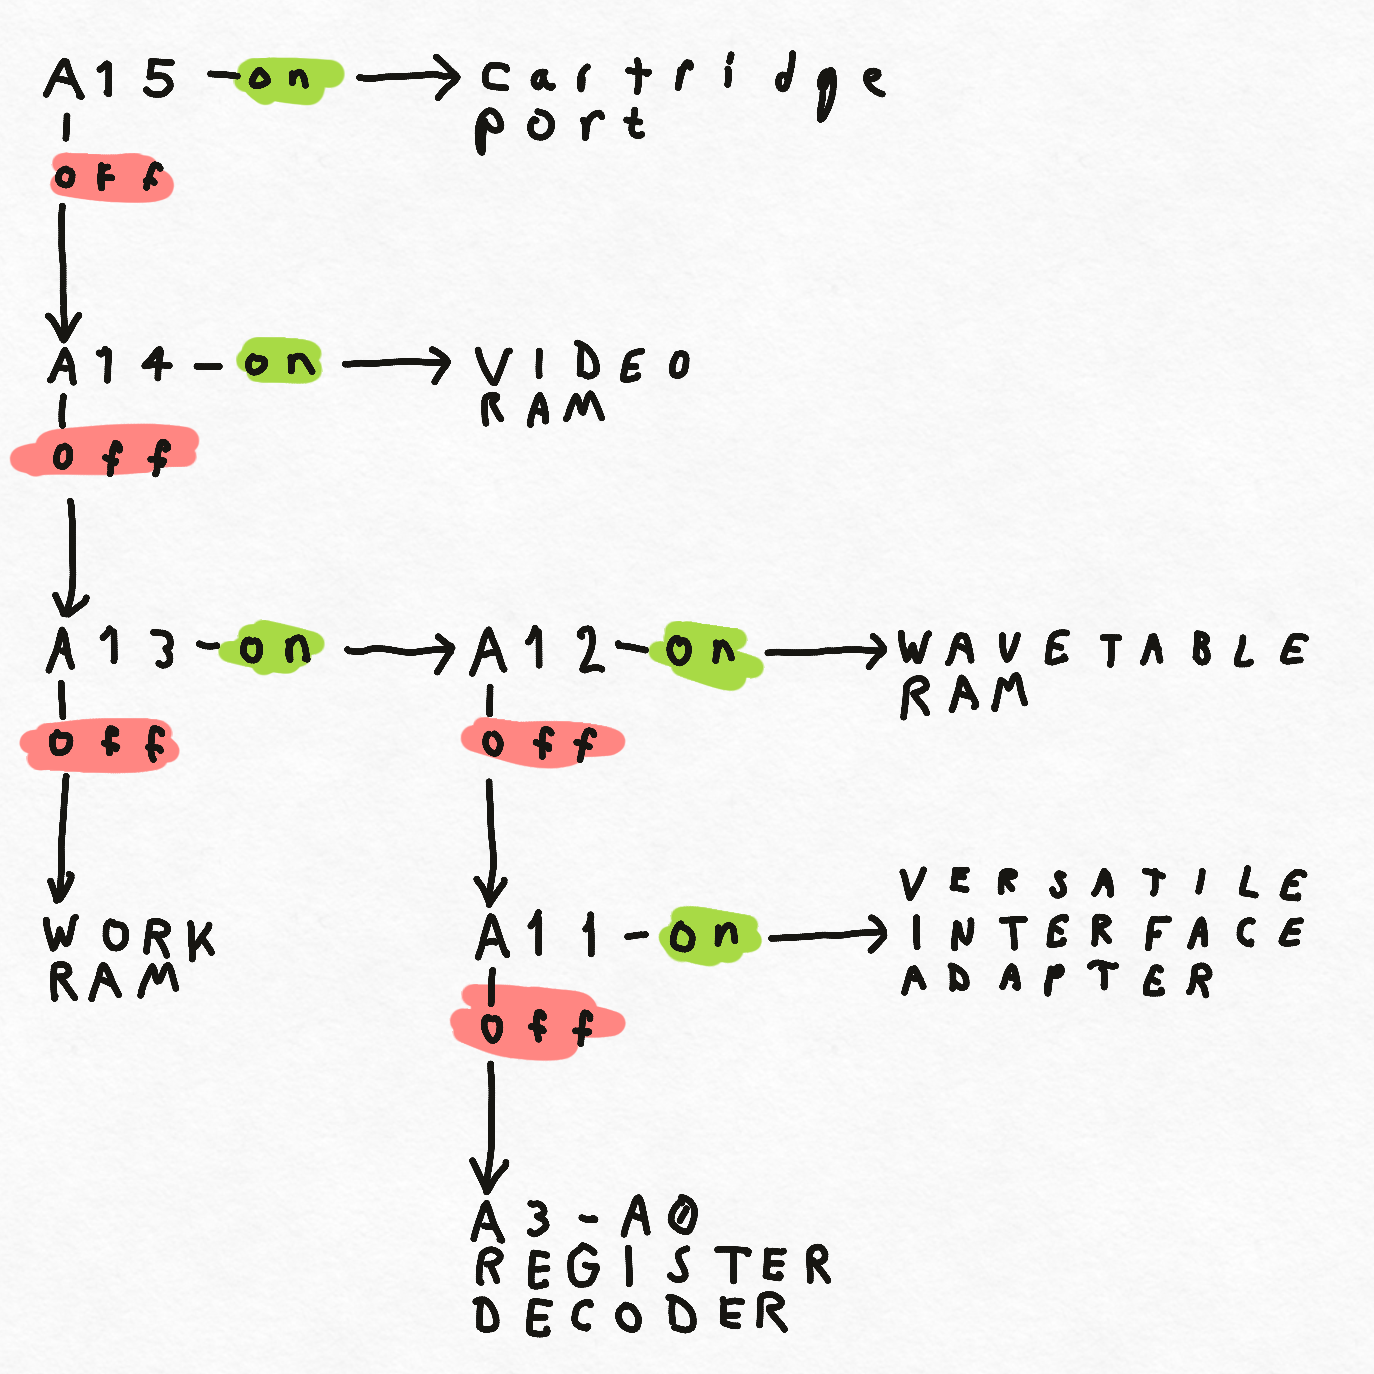 A15 on cartridge
port
off
A14 on VIDEO
RAM
off
A13 on A12 on WAVETABLE
RAM
off off
VERSATILE
WORK A11 on INTERFACE
RAM ADAPTER
off
A3-A0
REGISTER
DECODER